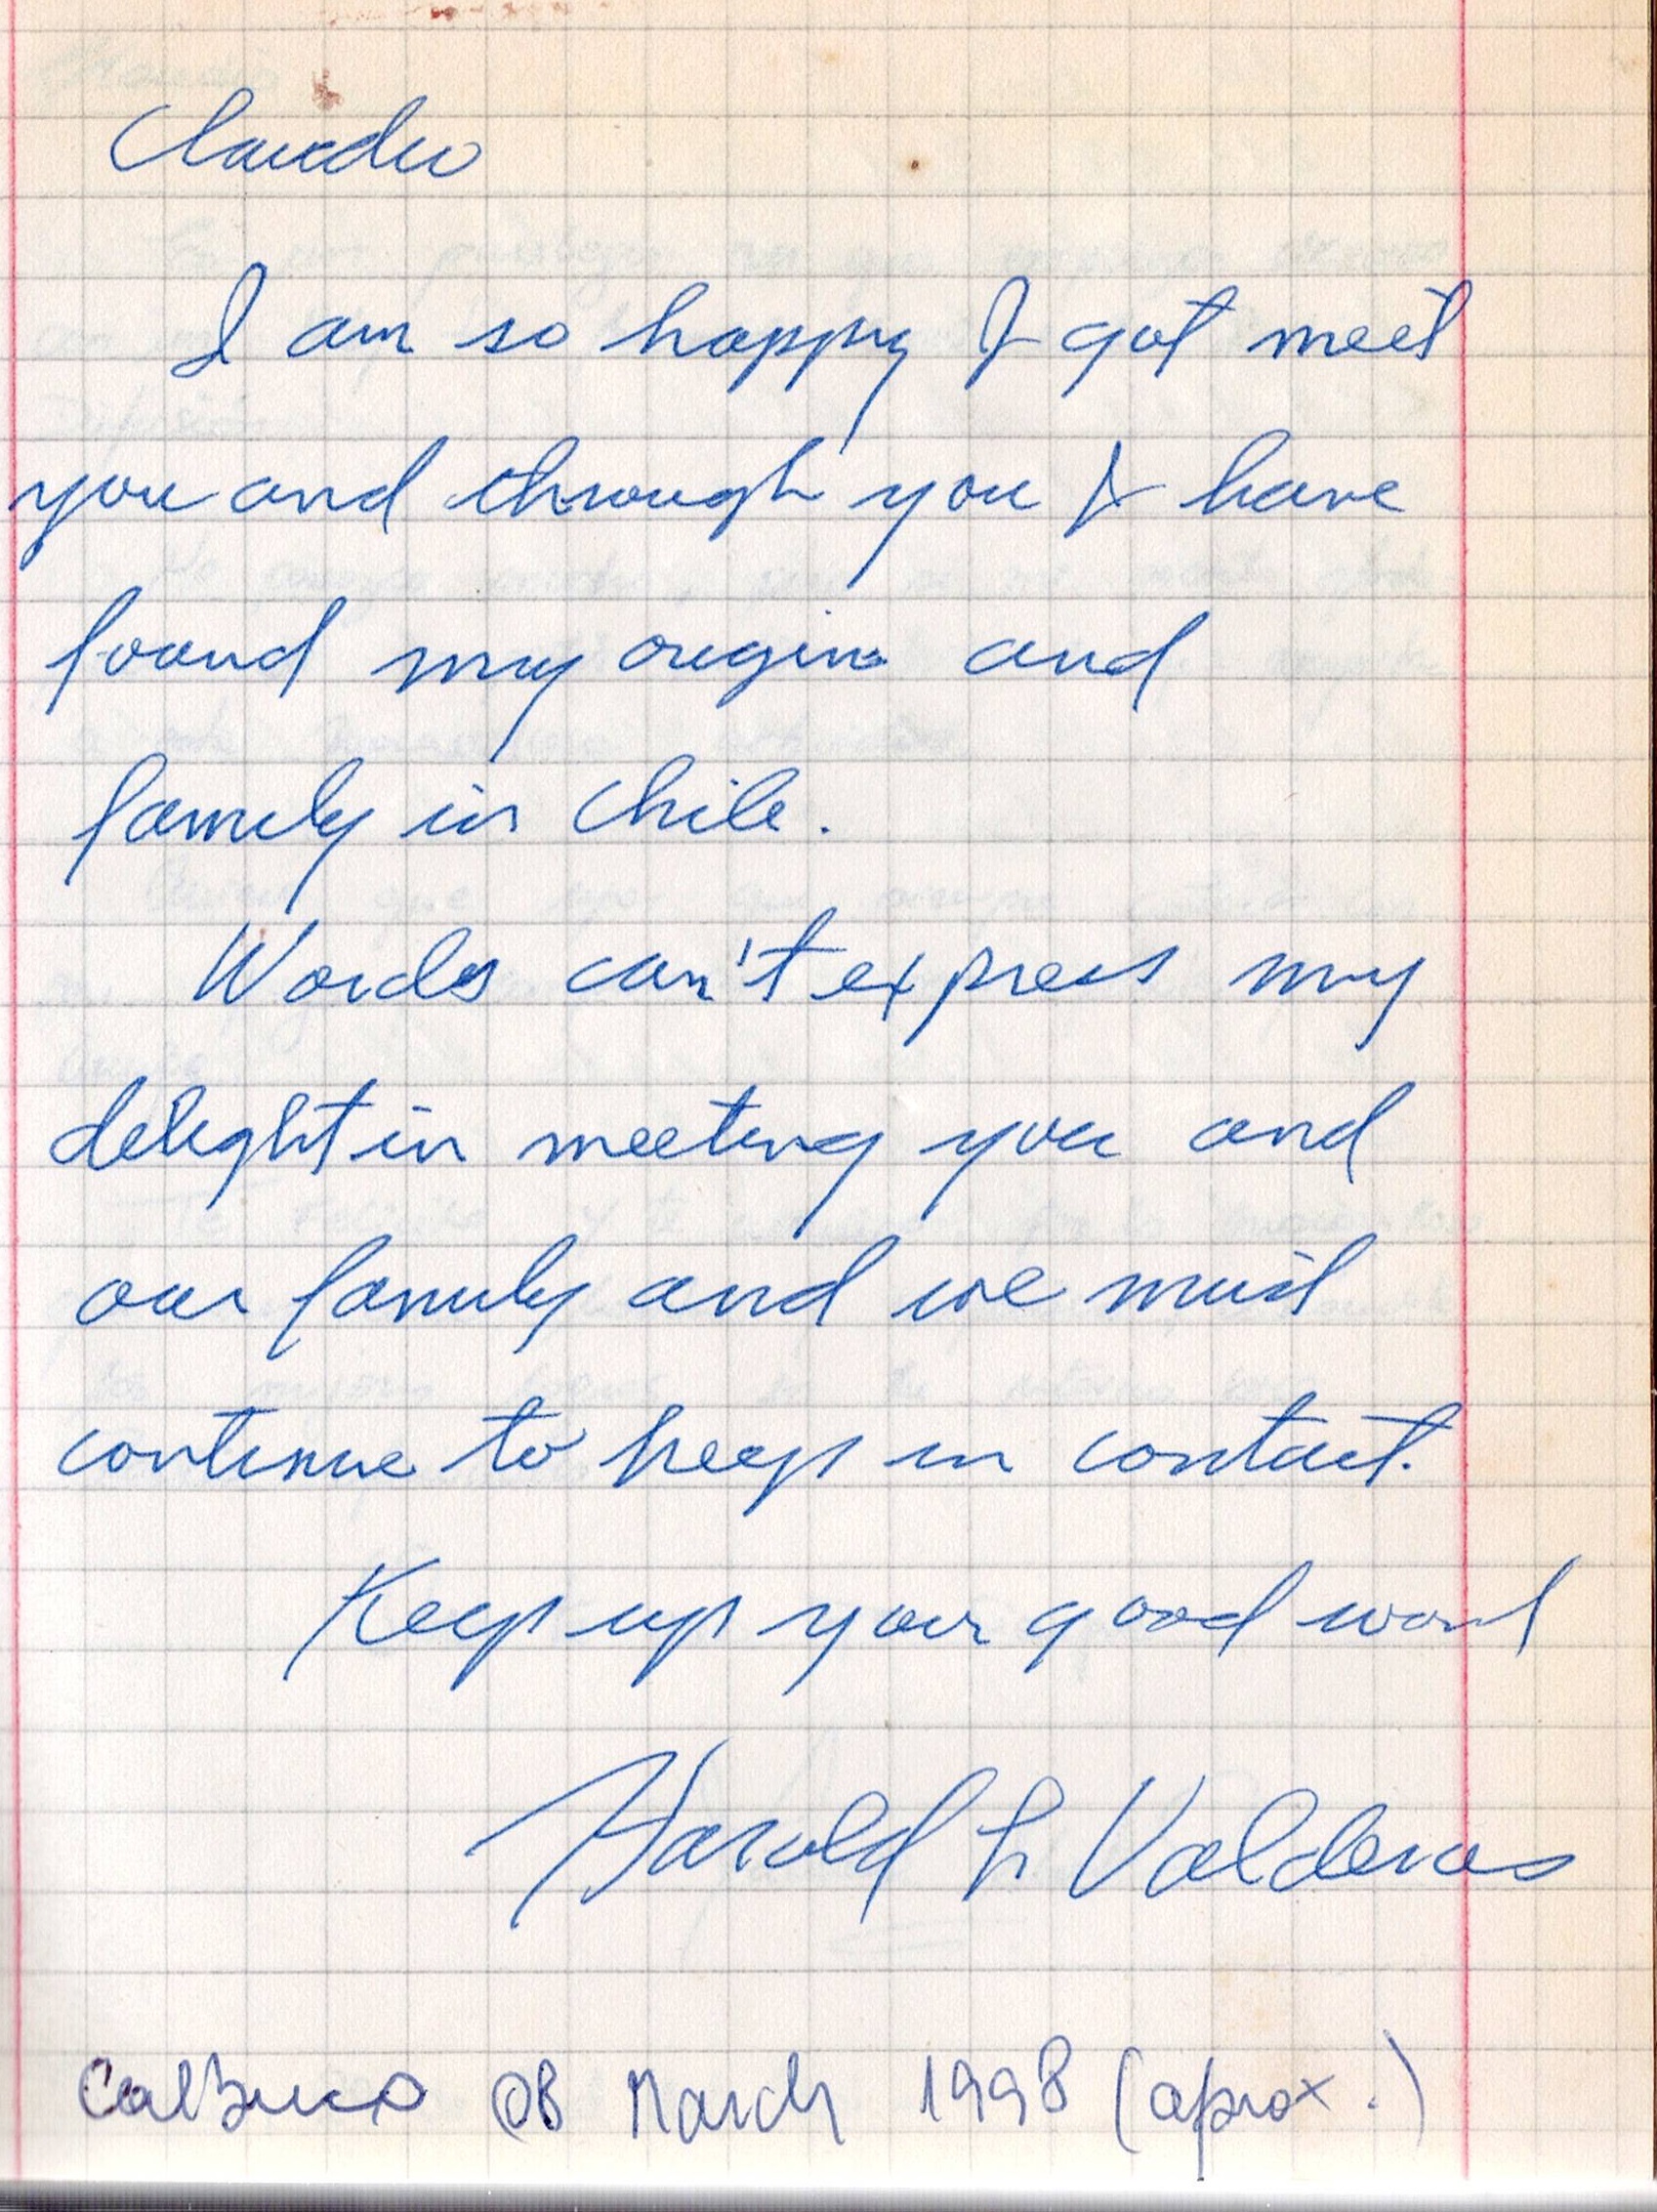 Claudio
I am so happy I got meet
you and through you I have
found my origin and
family in Chile.
Words can't express my
delight in meeting you and
our family and we must
continue to keep in contact.
Keep up your good work
Harold L Valderas
Calbuco 08 March 1998 (aprox.)